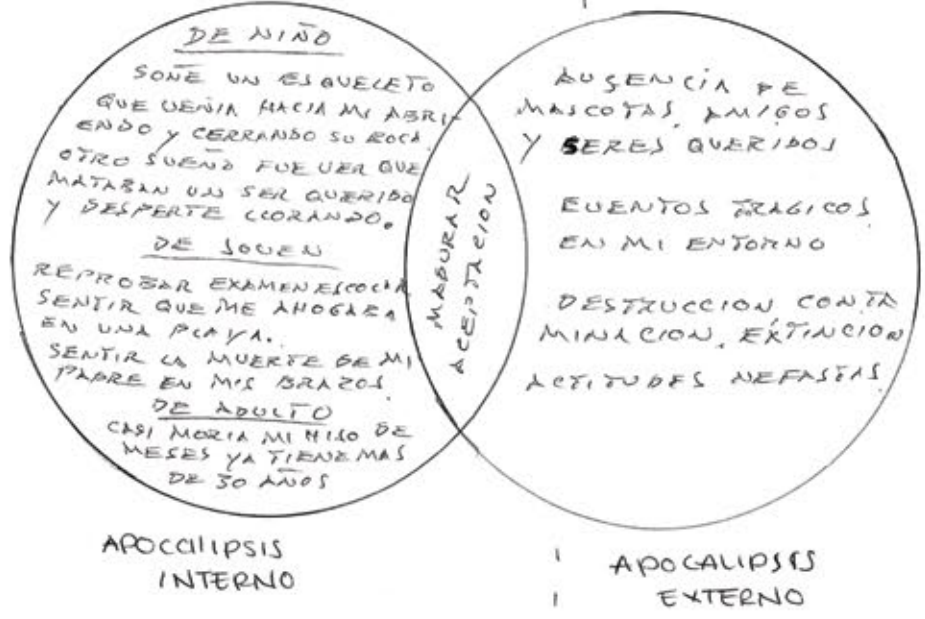 DE NIÑO
SOÑE UN ESQUELETO
QUE VENIA HACIA MI ABRI-
ENDO Y CERRANDO SU BOCA.
OTRO SUEÑO FUE VER QUE
MATABAN UN SER QUERIDO
Y DESPERTE LLORANDO.
DE JOVEN
REPROBAR EXAMEN ESCOLAR
SENTIR QUE ME AHOGARA
EN UNA PLAYA.
SENTIR LA MUERTE DE MI
PADRE EN MIS BRAZOS
DE ADULTO
CASI MORIA MI HIJO DE
MESES YA TIENE MAS
DE 30 AÑOS
APOCALIPSIS
INTERNO
MADURAR
ACEPTACION
AUSENCIA DE
MASCOTAS, AMIGOS
Y SERES QUERIDOS
EVENTOS TRAGICOS
EN MI ENTORNO
DESTRUCCION, CONTA
MINACION, EXTINCION
ACTITUDES NEFASTAS
APOCALIPSIS
EXTERNO